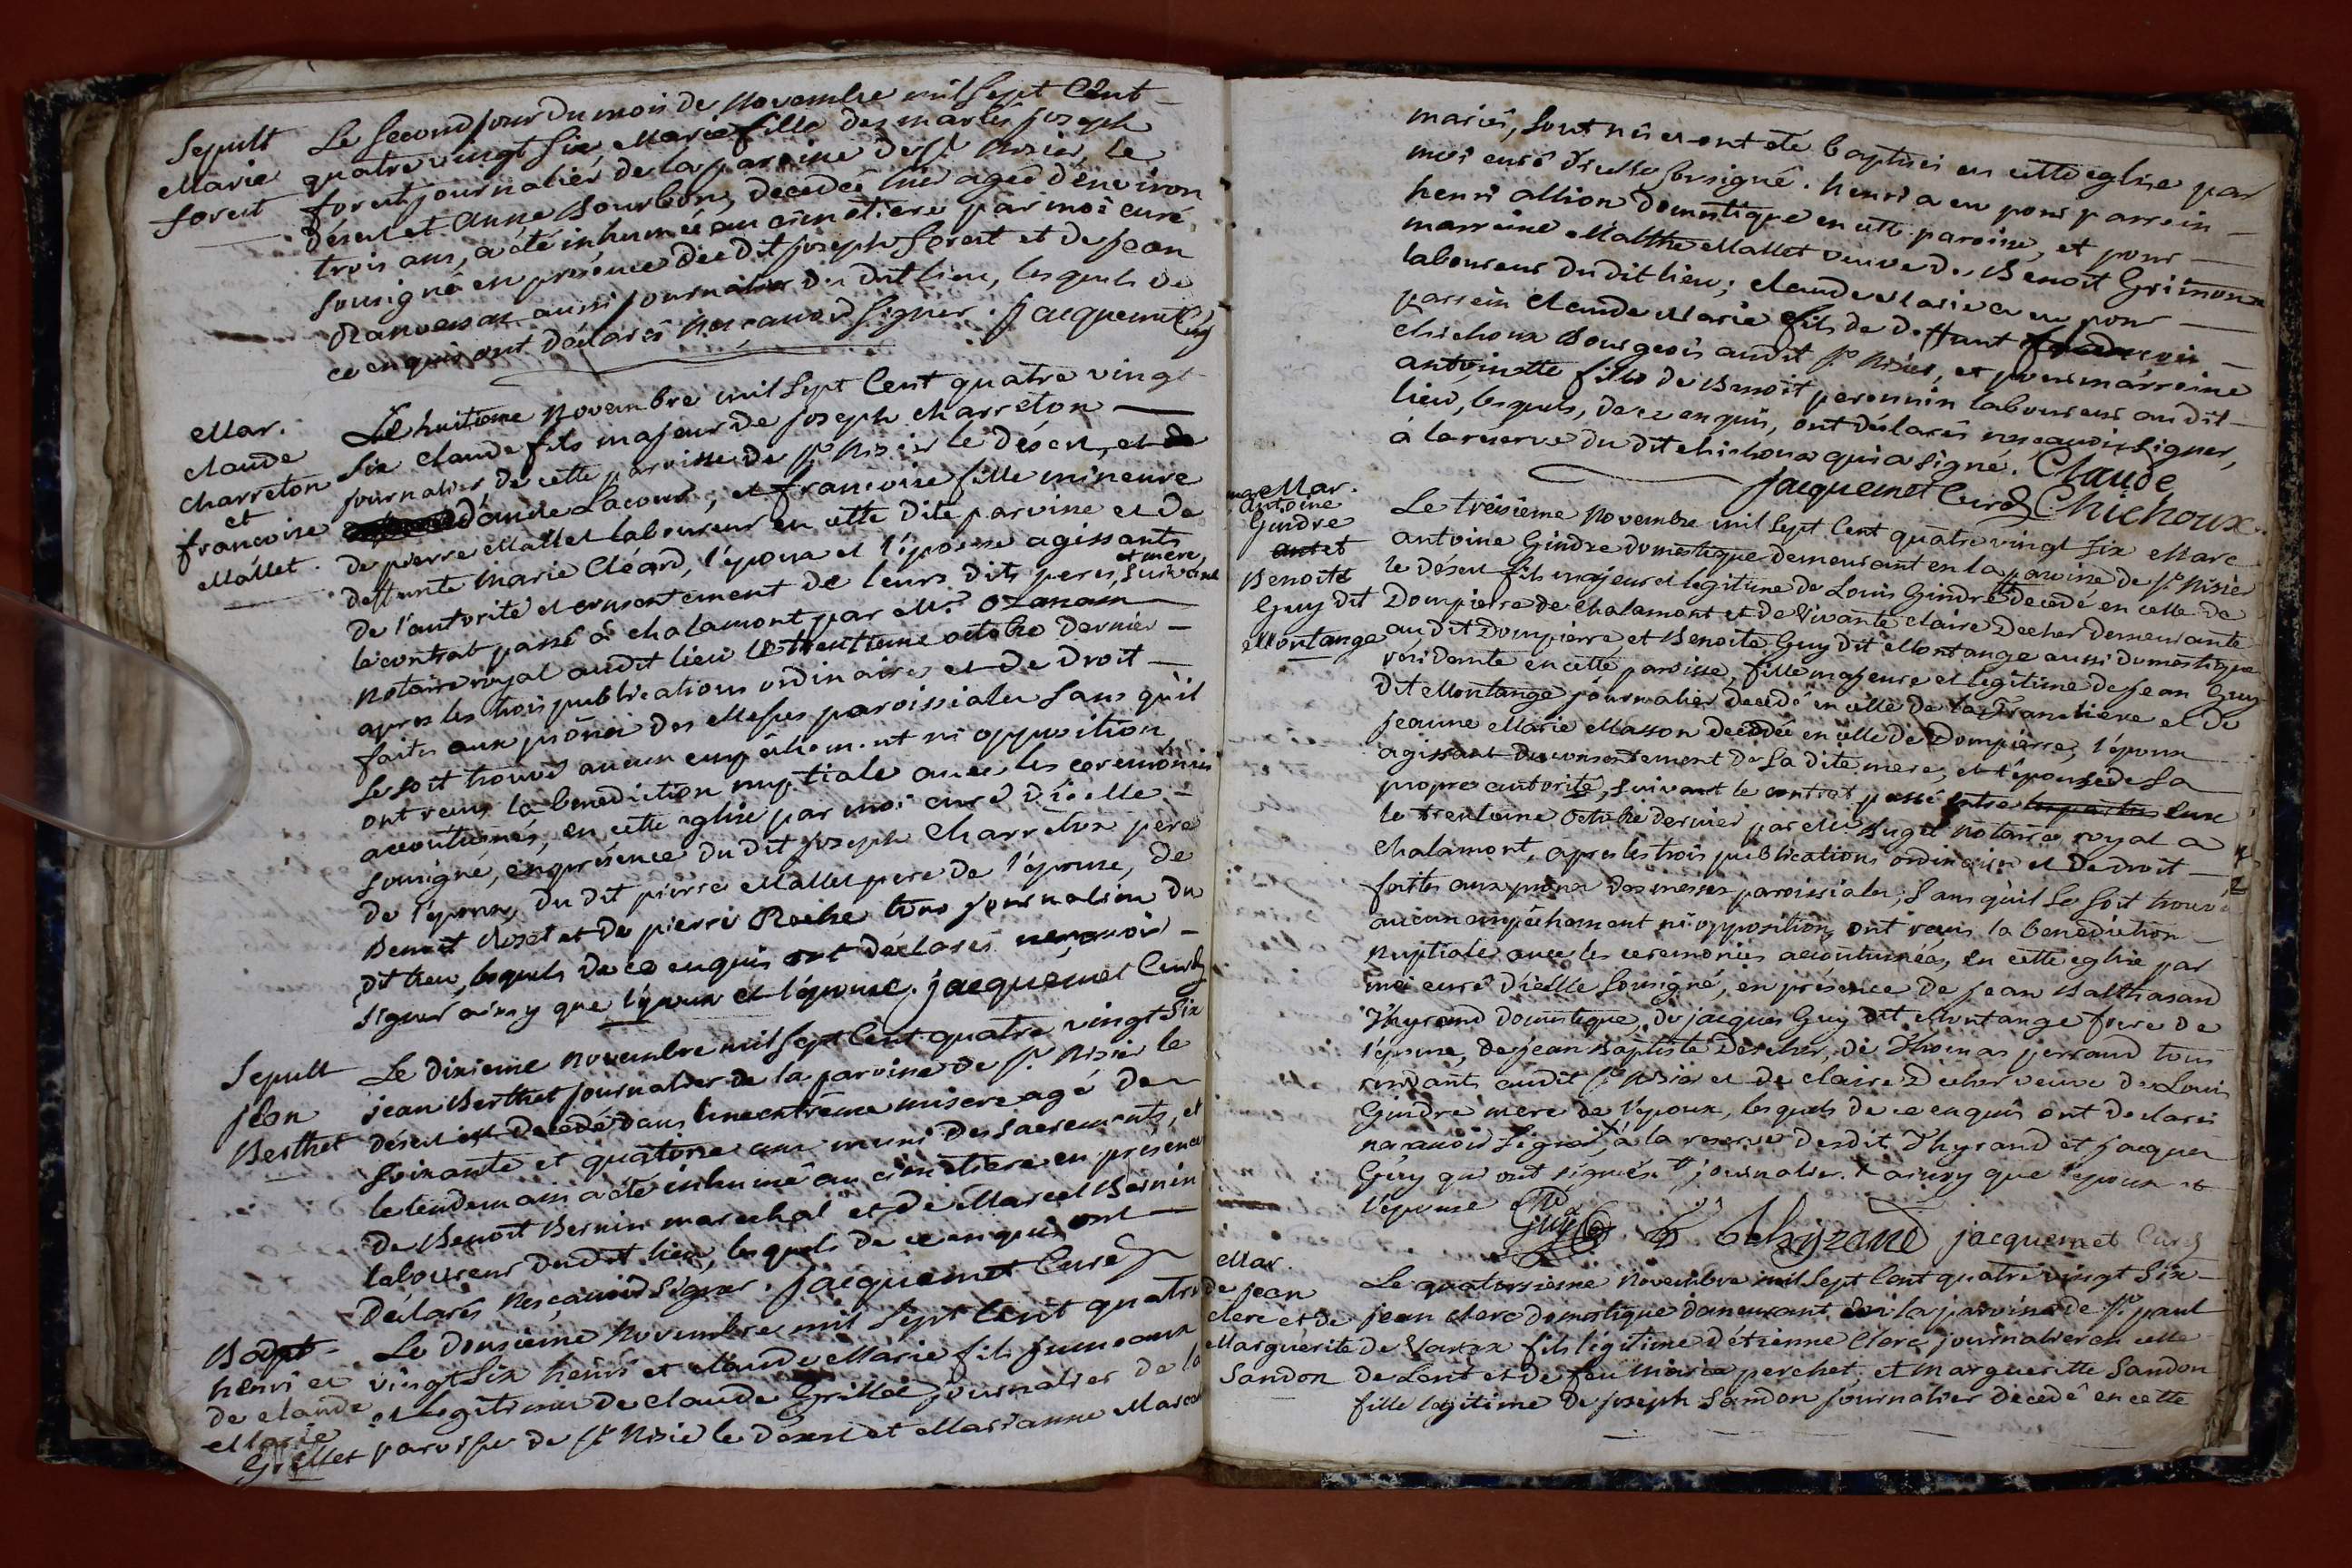 Sepult
Marie
forest
Le second jour du mois de novembre mil sept cent
quatre vingt six, Marie fille des mariés joseph
forest journalier de la paroisse de St. Nisier le
désert et anne Bourbon, decedée hier agée d'environ
trois ans, a été inhumée au cimetiere par moi curé
sousigné en présence du dit joseph forest et de jean
aussi journalier du dit lieu, les quels de
ce enquis ont déclarés ne sçavoir signer. jacquemet Curé
Mar.
claude
charreton
et
francoise
Mallet.
Le huitieme novembre mil sept cent quatre vingt
six claude fils majeur de joseph charreton
journalier de cette paroisse de St. Nisier le désert, et
d'anne Lacour, et francoise fille mineure
de pierre Mallet laboureur en cette dite paroisse et de
deffunte Marie Cléard, l'époux et l'épouse agissants
de l'autorité et consentement de leurs dits peres, et mere, suivant
le contrat passé à chalamont par Me. Ozanam
notaire royal audit lieu le trentieme octobre dernier
apres les trois publications ordinaires et de droit
faites aux prônes des Messes paroissiales sans qu'il
se soit trouvé aucun empêchement ni opposition,
ont reçus la benediction nuptiale avec les ceremonies
accoutumées, en cette eglise par moi curé d'icelle
sousigné, en présence du dit joseph charreton pere
de l'époux, du dit pierre Mallet pere de l'épouse, de
Benoit Rozet et de pierre Roche tous journaliers du
dit lieu, lesquels de ce enquis ont déclarés ne sçavoir
signer ainsy que l'époux et l'épouse. jacquemet Curé
Sepult
jean
Berthet
Le dixieme novembre mil sept cent quatre vingt six
jean Berthet journalier de la paroisse de St. Nisier le
désert est decedé dans une extrême misere agé de
soixante et quatorze ans muni des sacrements, et
le lendemain a été inhumé au cimetiere en présence
de Benoit Bernin marechal et de Marcel Bernin
laboureur dudit lieu, lesquels de ce enquis ont
déclarés ne sçavoir signer. jacquemet Curé
Bapt
henri et
de claude
Marie
Grillet
Le douzieme novembre mil sept cent quatre
vingt six henri et claude Marie fils jumeaux
et legitimes de claude Grillet journalier de la
paroisse de St. Nisié le désert et Marianne
mariés, sont nés et ont été baptisés en cette eglise par
moi curé d'icelle sousigné. henri a eu pour parrein
henri allion domestique en cette paroisse, et pour
marreine Malthe Mallet veuve de Benoit Grimoux
laboureur du dit lieu; claude Marie a eu pour
parrein claude Marie fils de deffunt
chichoux Bourgeois audit St. Nisier, et pour marreine
antoinette fille de Benoit peronnin laboureur audit
lieu, lesquels, de ce enquis, ont déclarés ne sçavoir signer,
à la réserve du dit chichoux qui a signé. Claude
jacquemet Curé Chichoux.
Mar.
antoine
Gindre
et
Benoite
Guy dit
Montange
Le treisieme novembre mil sept cent quatre vingt six Marc
antoine Gindre domestique demeurant en la paroisse de St. Nisier
le désert fils majeur et legitime de Louis Gindre decedé en celle de
Dompierre de chalamont et de vivante claire Decher demeurante
audit Dompierre, et Benoite Guy dit Montange aussi domestique
residante en cette paroisse, fille majeure et legitime de jean Guy
dit Montange journalier decedé en celle de la Tranclière et de
jeanne Marie Masson decedée en celle de Dompierre, l'époux
agissant du consentement de sa dite mere, et l'épouse de sa
propre autorité, suivant le contrat passé entre les parties eux
le trentieme octobre dernier par Me notaire royal a
chalamont, apres les trois publications ordinaires et de droit
faites aux prones des messes paroissiales, sans qu'il se soit trouvé
aucun empêchement ni opposition, ont reçus la benediction
nuptiale avec les ceremonies accoutumées, en cette eglise par
moi curé d'icelle sousigné, en présence de jean Balthasard
Thyrand domestique, de jacques Guy dit Montange frere de
l'épouse, de jean Baptiste Decher, de Thomas perraud tous
residants audit St. Nisier et de claire Decher veuve de Louis
Gindre mere de l'époux, lesquels de ce enquis ont declarés
ne sçavoir signer, à la reserve desdit Thyrand et jacques
Guy qui ont signés. journalier. ainsy que l'époux et
l'épouse
Guy B thyrand jacquemet Curé
Mar.
de jean
clerc et de
Marguerite
Sandon
Le quatorsieme novembre mil sept cent quatre vingt six
jean clerc domestique demeurant en la paroisse de St. paul
de Varax fils légitime d'étienne clerc journalier en celle
de Lent et de feu Marie perchet, et Marguerite Sandon
fille legitime de joseph Sandon journalier decedé en cette